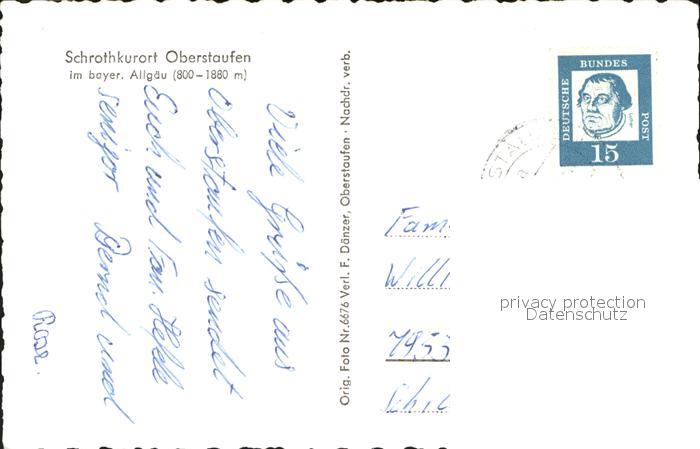 Schrothkurort Oberstaufen
im bayer. Allgäu (800–1880 m)
Viele Grüße aus
Oberstaufen sendet
Euch und Fam. Hefele
senior Bernd und
Rose.
Orig. Foto Nr.6676 Verl. F. Dänzer, Oberstaufen · Nachdr. verb.
DEUTSCHE
BUNDES
POST
Luther
15
STAU
Fam.
Willi
7953
Sch
privacy protection
Datenschutz